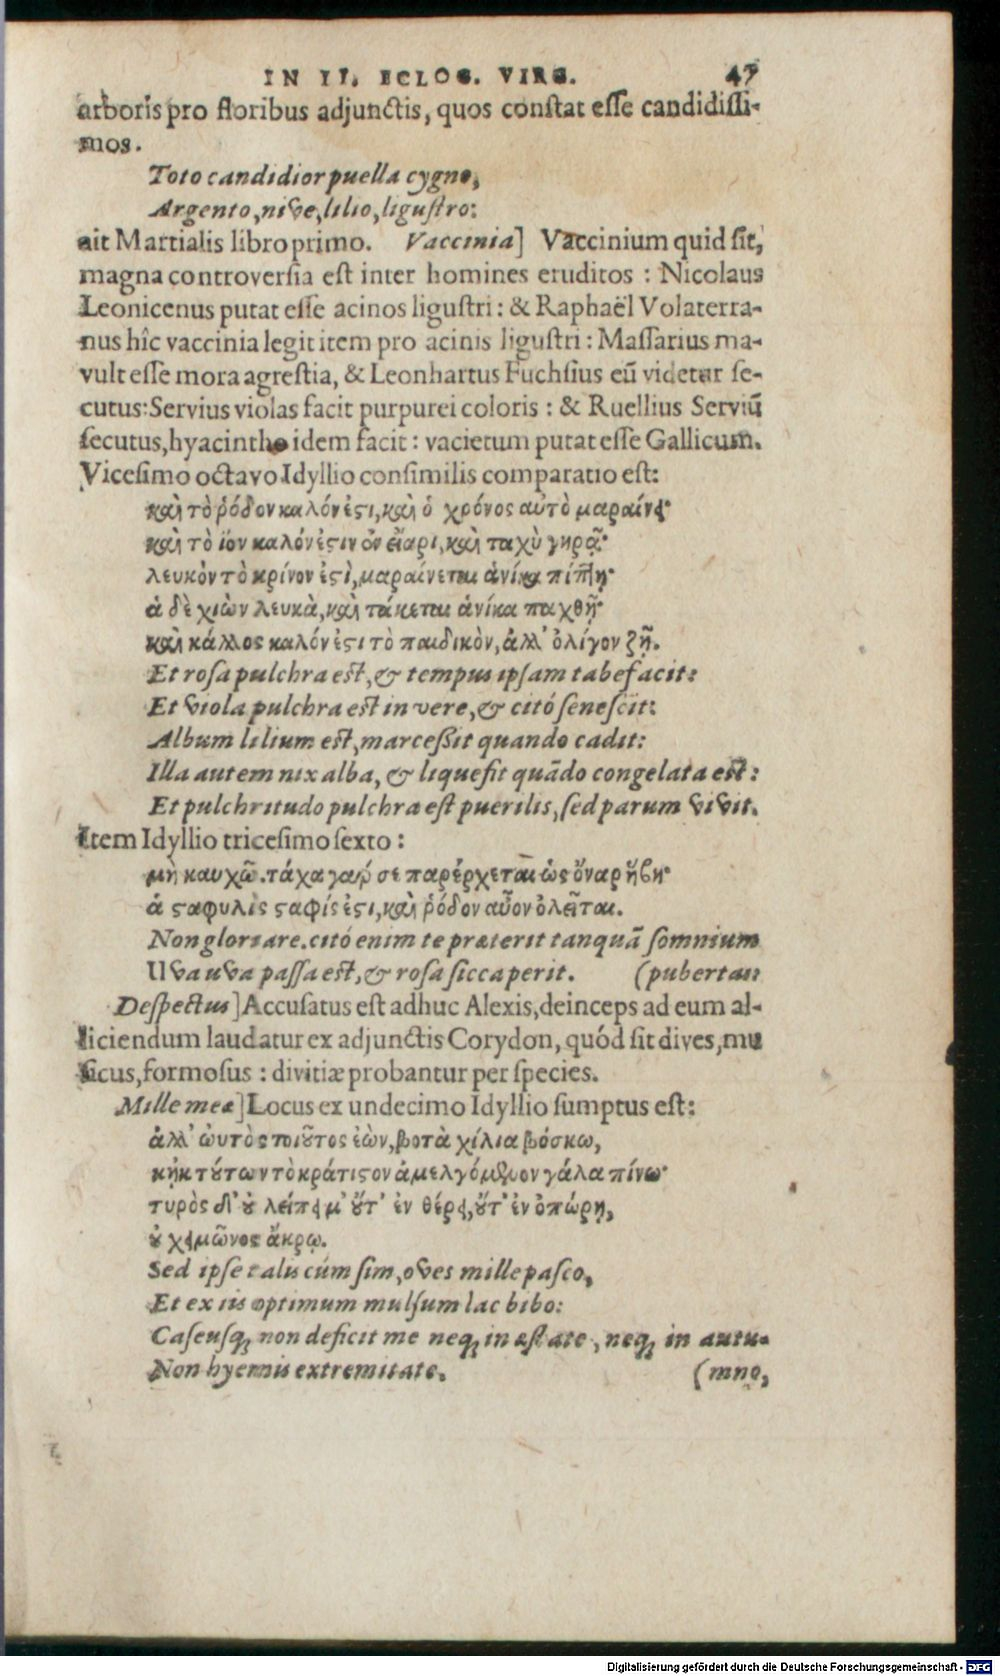 IN II. ECLOG. VIRG. 47
arboris pro floribus adjunctis, quos constat esse candidissi-
mos.
Toto candidior puella cygno,
Argento, nive, lilio, ligustro:
ait Martialis libro primo. Vaccinia] Vaccinium quid sit,
magna controversia est inter homines eruditos : Nicolaus
Leonicenus putat esse acinos ligustri: & Raphaël Volaterra-
nus hîc vaccinia legit item pro acinis ligustri : Massarius ma-
vult esse mora agrestia, & Leonhartus Fuchsius eũ videtur se-
cutus: Servius violas facit purpurei coloris : & Ruellius Serviũ
secutus, hyacintho idem facit : vacietum putat esse Gallicum.
Vicesimo octavo Idyllio consimilis comparatio est:
καὶ τὸ ῥόδον καλόν ἐστι, καὶ ὁ χρόνος αὐτὸ μαραίνει·
καὶ τὸ ἴον καλόν ἐστιν ἐν εἴαρι, καὶ ταχὺ γηρᾷ·
λευκὸν τὸ κρίνον ἐστὶ, μαραίνεται ἁνίκα πίπτῃ·
ἁ δὲ χιὼν λευκὰ, καὶ τάκεται ἁνίκα παχθῇ·
καὶ κάλλος καλόν ἐστι τὸ παιδικὸν, ἀλλ' ὀλίγον ζῇ.
Et rosa pulchra est, & tempus ipsam tabefacit:
Et viola pulchra est in vere, & citó senescit:
Album lilium est, marcessit quando cadit:
Illa autem nix alba, & liquefit quãdo congelata est:
Et pulchritudo pulchra est puerilis, sed parum vivit.
Item Idyllio tricesimo sexto:
μὴ καυχῶ. τάχα γαρ σε παρέρχεται ὡς ὄναρ ἥβη·
ἁ σταφυλὶς σταφίς ἐστι, καὶ ῥόδον αὖον ὀλεῖται.
Non gloriare. citó enim te præterit tanquã somnium
Uva uva passa est, & rosa sicca perit. (pubertas:
Despectus] Accusatus est adhuc Alexis, deinceps ad eum al-
liciendum laudatur ex adjunctis Corydon, quód sit dives, mu
sicus, formosus : divitiæ probantur per species.
Mille meæ] Locus ex undecimo Idyllio sumptus est:
ἀλλ' ὡυτὸς τοιοῦτος ἐὼν, βοτὰ χίλια βόσκω,
κἠκ τούτων τὸ κράτιστον ἀμελγόμενον γάλα πίνω·
τυρὸς δ' οὐ λείπει μ' οὔτ' ἐν θέρει, οὔτ' ἐν ὀπώρῃ,
οὐ χειμῶνος ἄκρῳ.
Sed ipse talis cúm sim, oves mille pasco,
Et ex iis optimum mulsum lac bibo:
Caseusq; non deficit me neq; in æstate, neq; in autu-
Non hyemis extremitate. (mno,
Digitalisierung gefördert durch die Deutsche Forschungsgemeinschaft - DFG